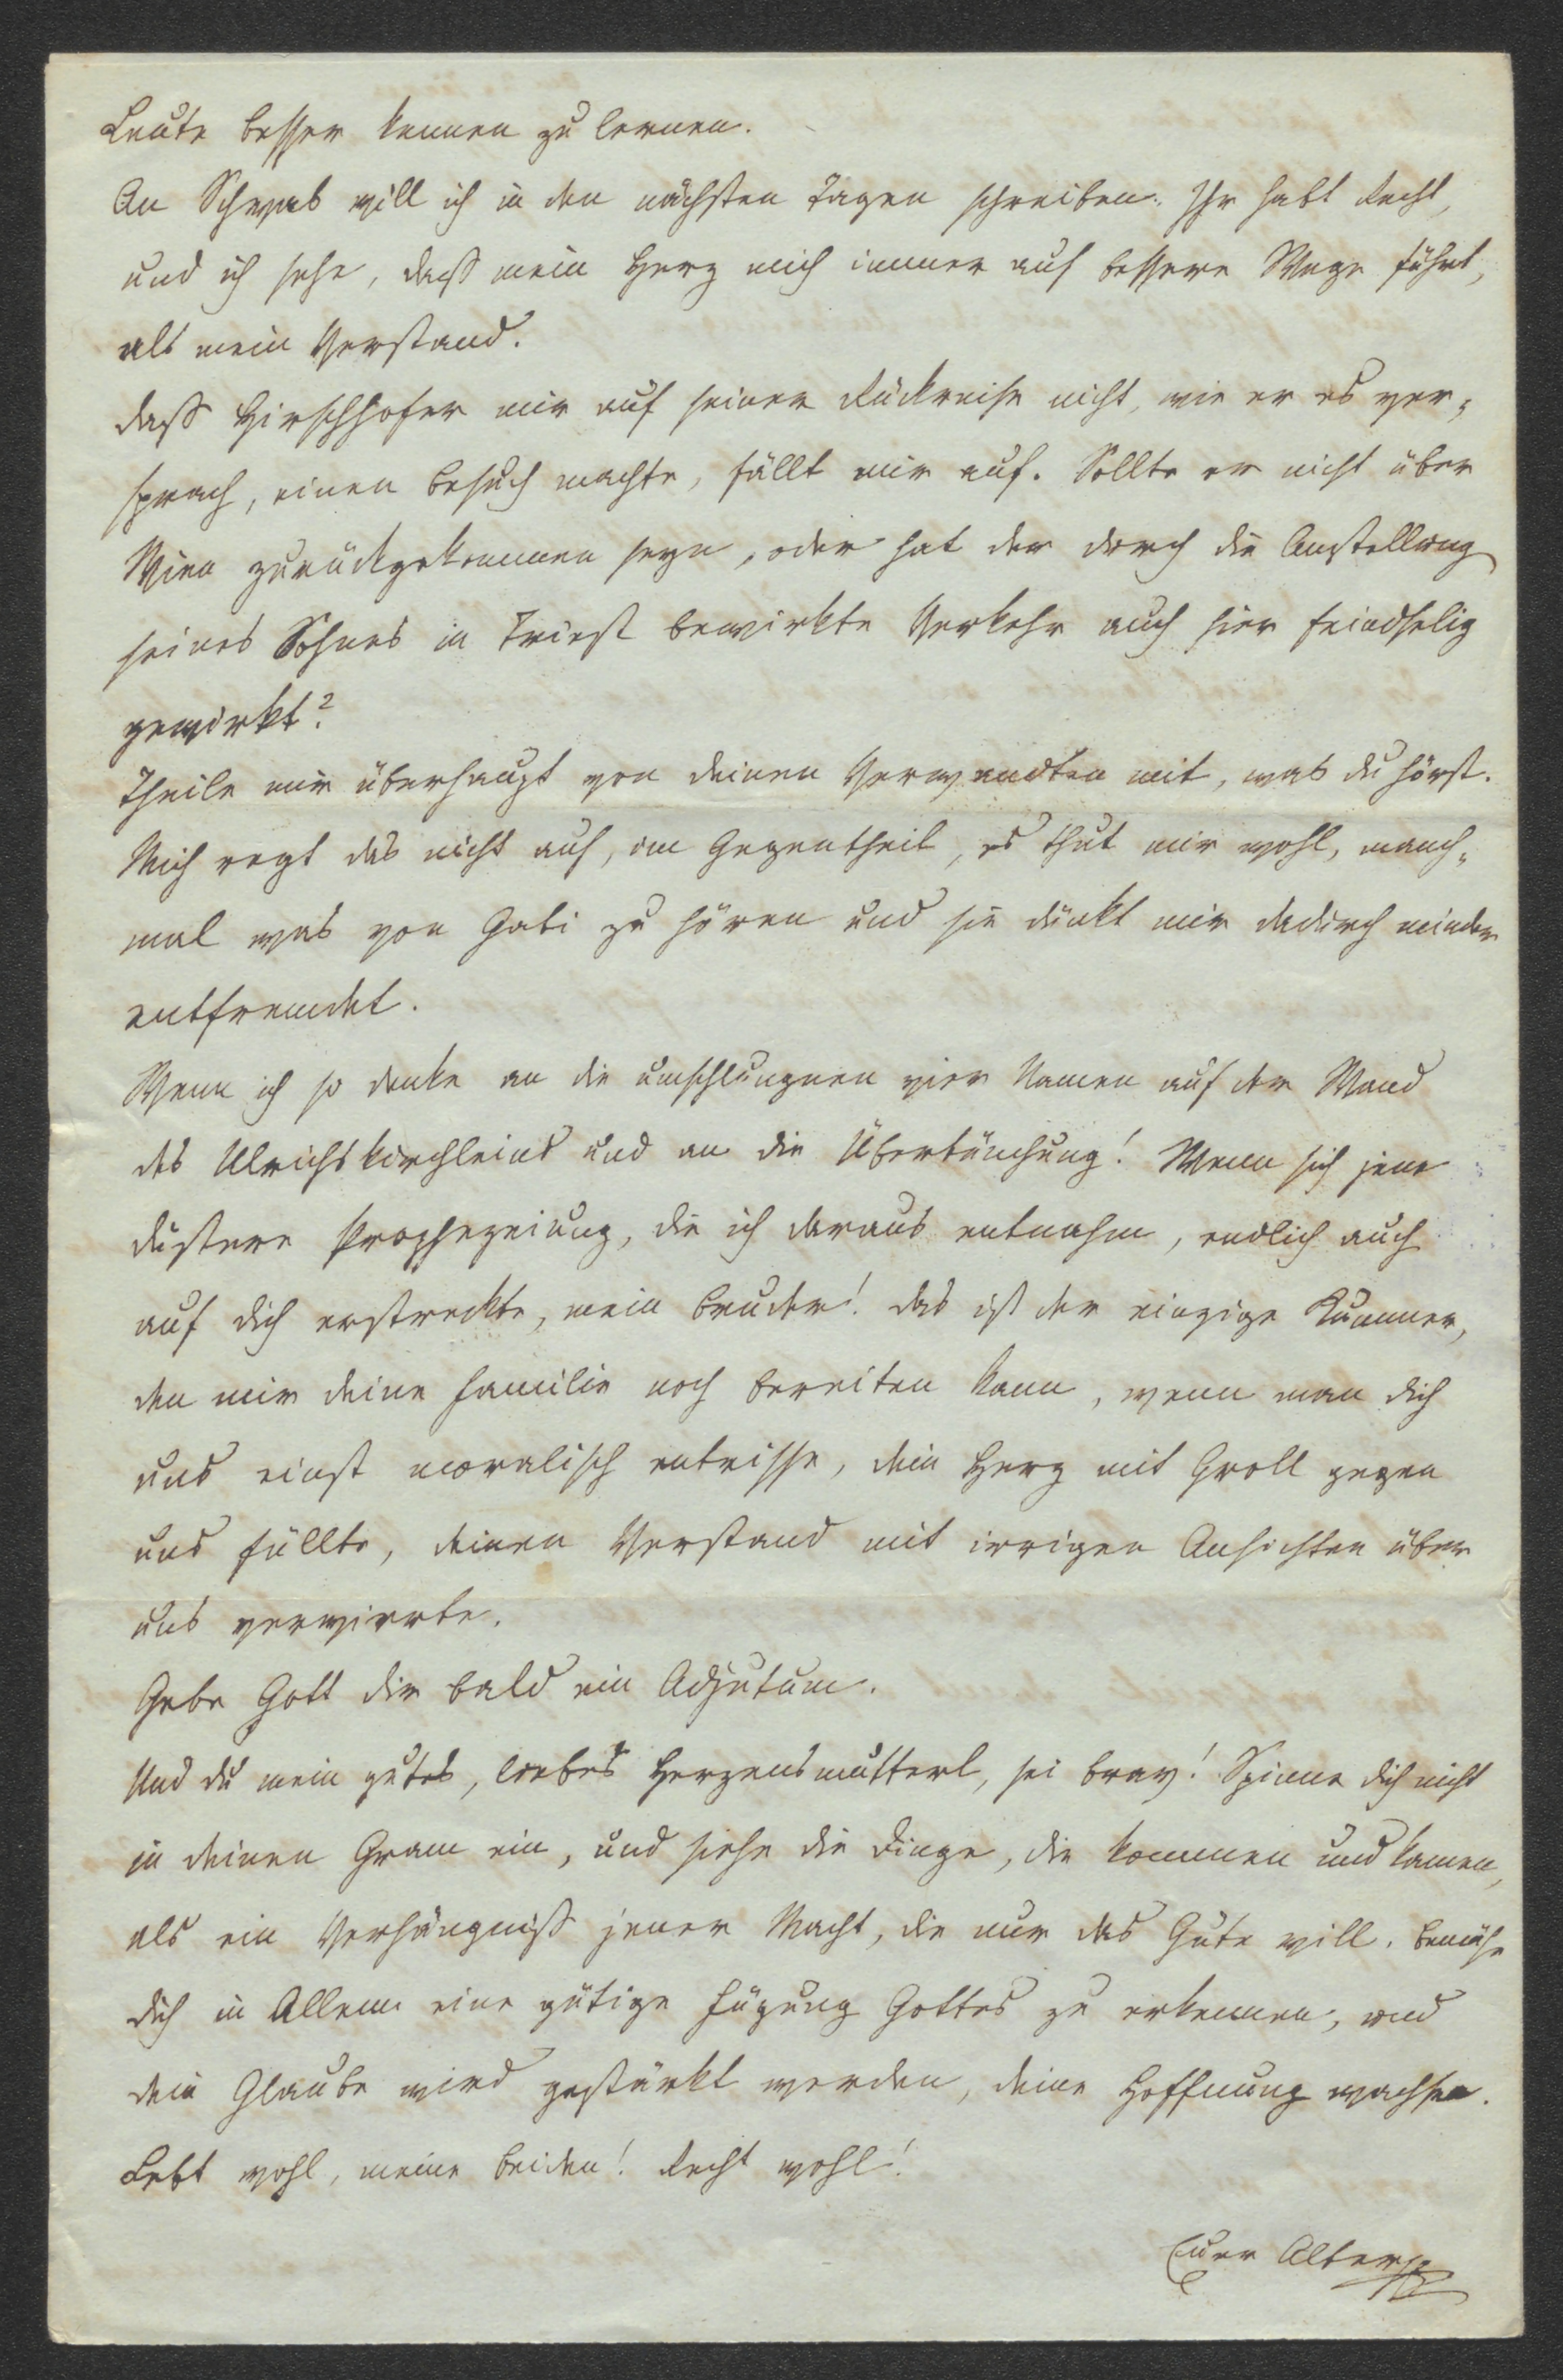 Leute besser kennen zu lernen.
An Schwab will ich in den nächsten Tagen schreiben. Ihr habt Recht,
und ich sehe, daß mein Herz mich immer auf bessere Wege führt,
als mein Verstand.
Daß Hirschhofer mir auf seiner Rückreise nicht, wie er es ver-
sprach, einen Besuch machte, fällt mir auf. Sollte er nicht über
Wien zurückgekommen seyn, oder hat der durch die Anstellung
seines Sohnes in Triest bewirkte Verkehr auch hier feindselig
gewirkt?
Theile mir überhaupt von deinen Verwandten mit, was du hörst.
Mich regt das nicht auf, im Gegentheil, es thut mir wohl, manch-
mal was von Gabi zu hören und sie dünkt mir dadurch minder
entfremdet.
Wenn ich so denke an die umschlungnen vier Namen auf der Wand
des Ulrichskirchleins und an die Übertünchung! Wenn sich jene
düstere Prophezeiung, die ich daraus entnahm, endlich auch
auf dich erstreckte, mein Bruder! Das ist der einzige Kummer,
den mir deine Familie noch bereiten kann, wenn man dich
uns einst moralisch entrisse, dein Herz mit Groll gegen
uns füllte, deinen Verstand mit irrigen Ansichten über
uns verwirrte.
Gebe Gott dir bald ein Adjutum.
Und du mein gutes, liebes Herzensmutterl, sei brav! Spinne dich nicht
in deinen Gram ein, und siehe die Dinge, die kommen und kamen,
als ein Verhängniß jener Macht, die nur das Gute will. Bemühe
dich in Allem eine gütige Fügung Gottes zu erkennen, und
dein Glaube wird gestärkt werden, deine Hoffnung wachsen.
Lebt wohl, meine Beiden! Recht wohl!
Euer Alter